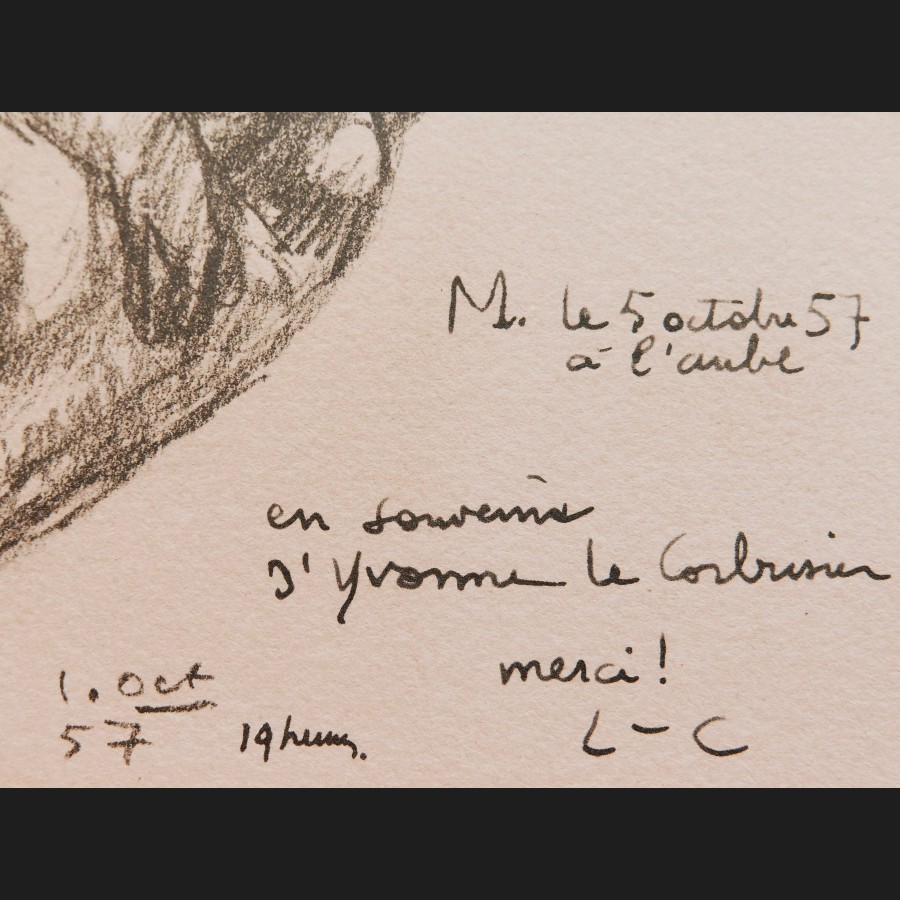 M. le 5 octobre 57
à l'aube
en souvenir
d'Yvonne le Corbusier
merci !
L-C
1. Oct
57 19 heures.